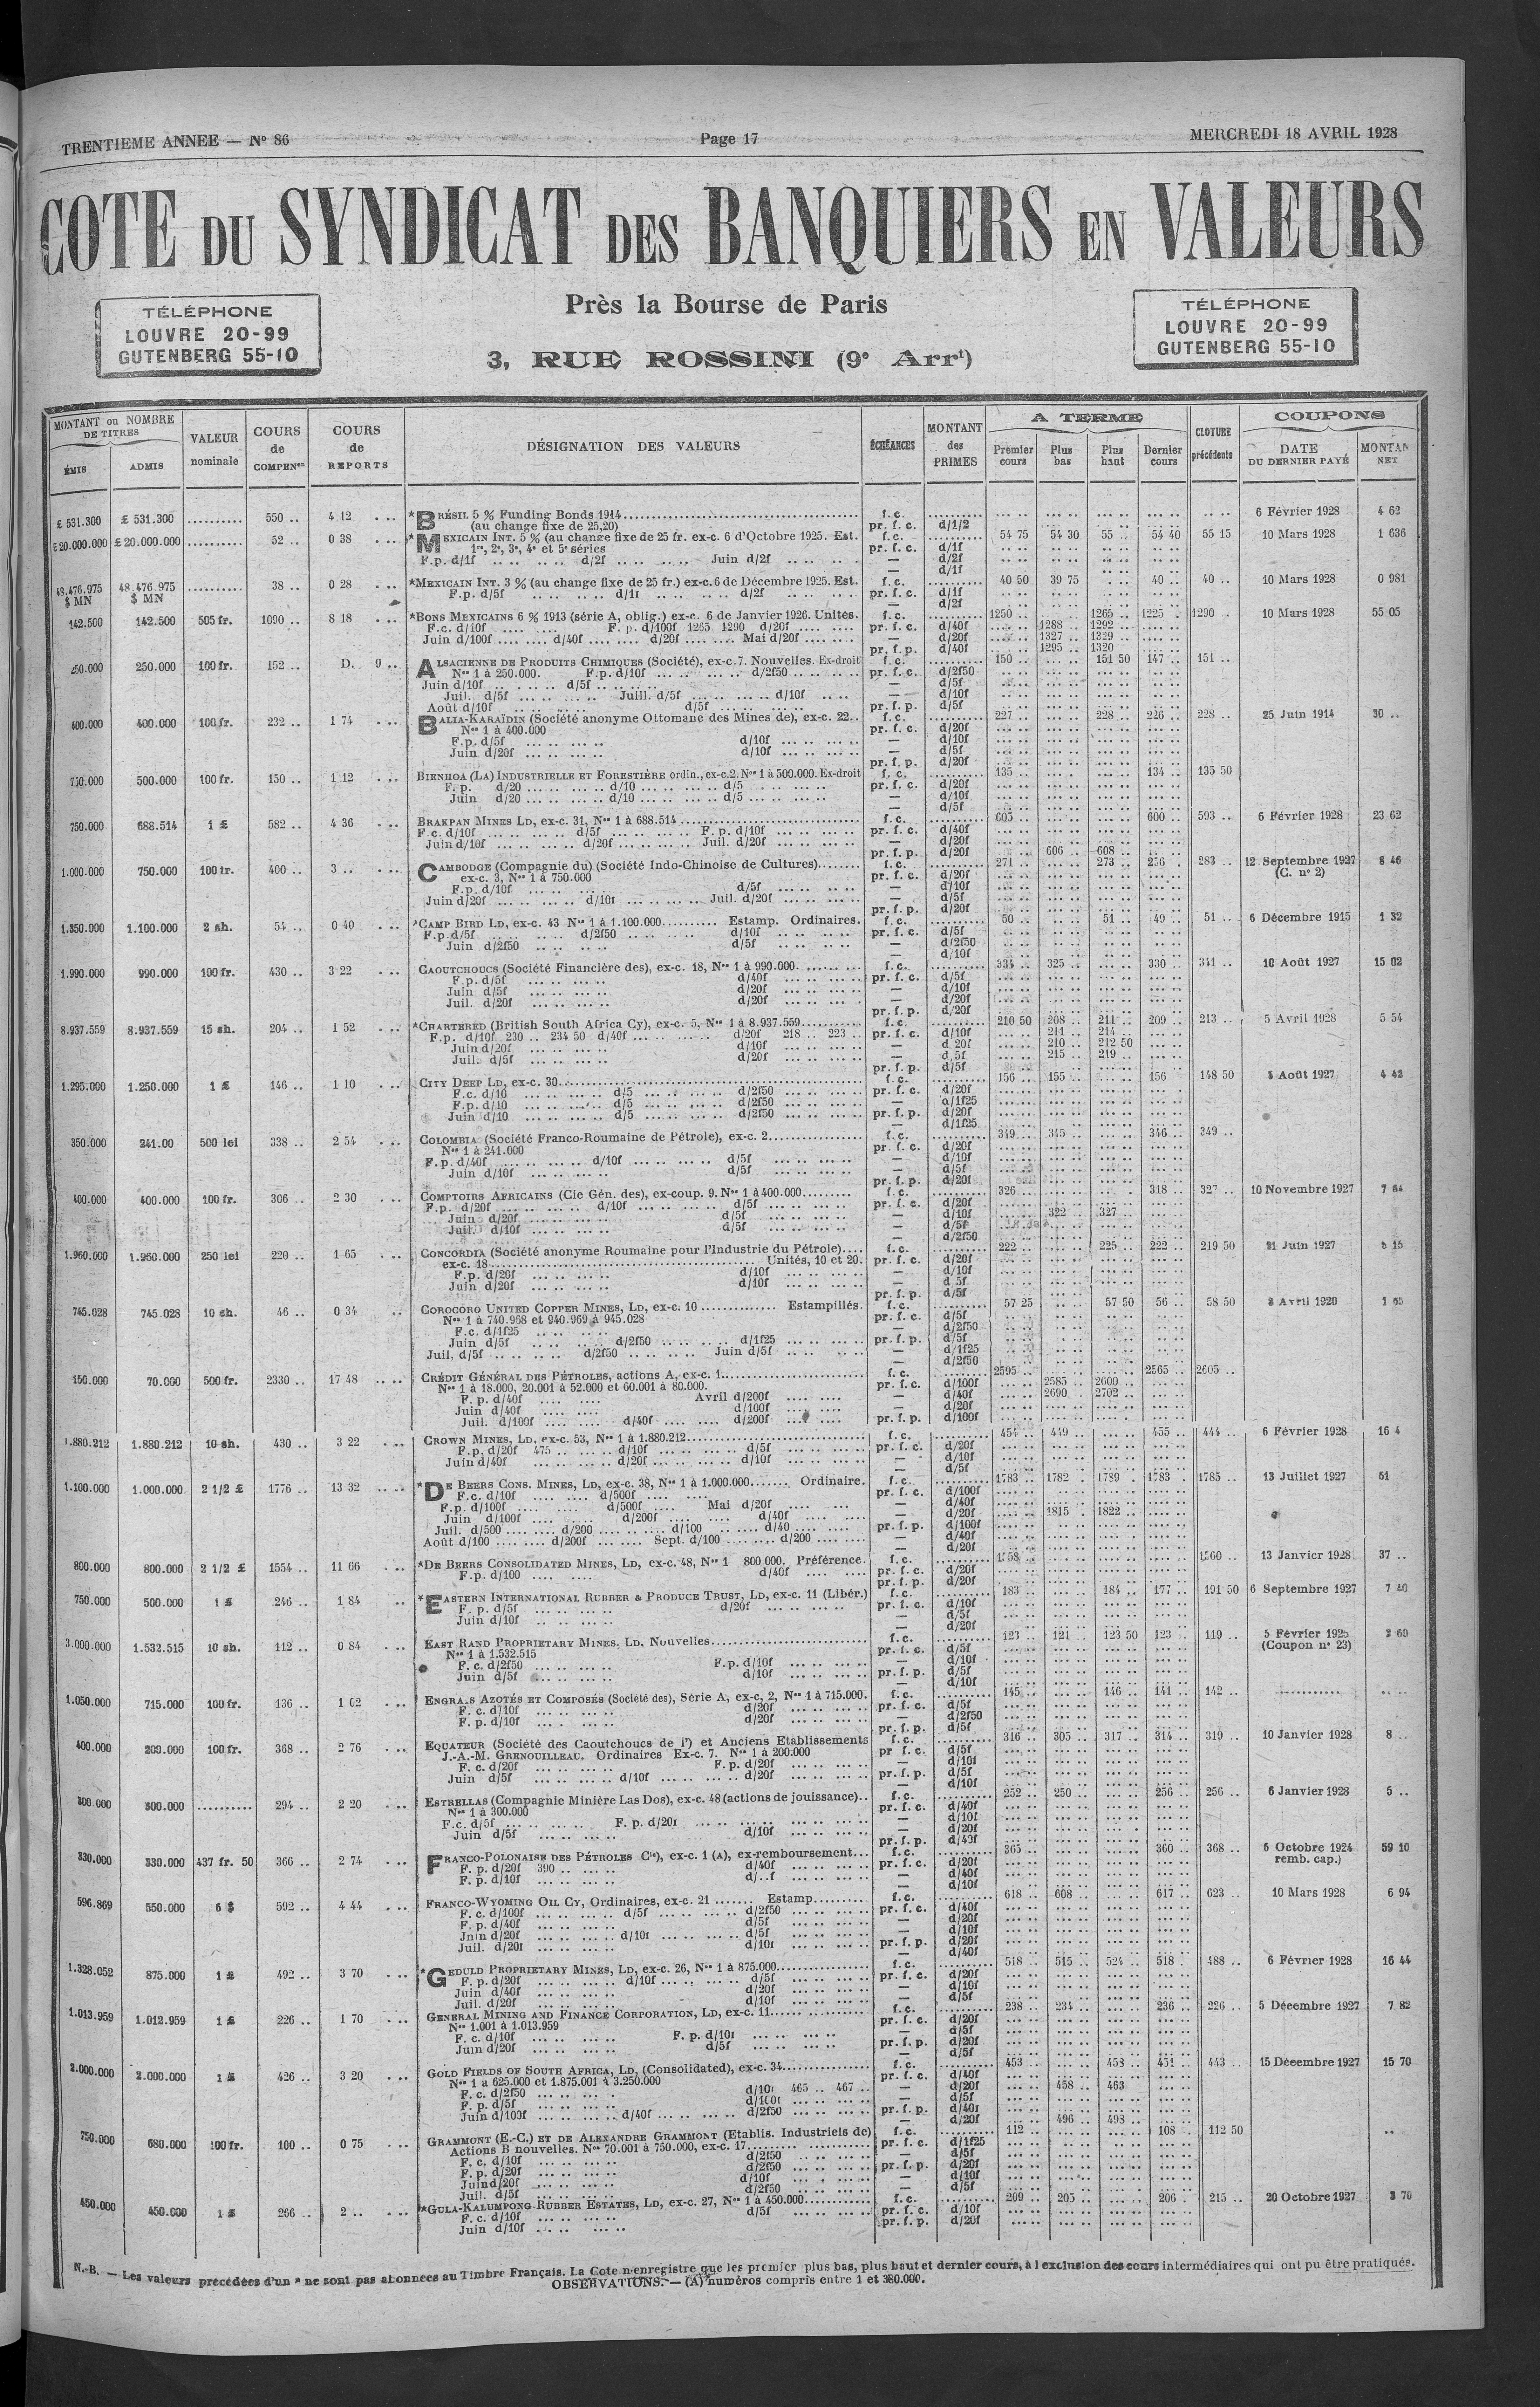 TRENTIEME ANNEE — N° 86
Page 17
MERCREDI 18 AVRIL 1928
COTE DU SYNDICAT DES BANQUIERS EN VALEURS
TÉLÉPHONE
LOUVRE 20-99
GUTENBERG 55-10
Près la Bourse de Paris
3, RUE ROSSINI (9e Arrt)
TÉLÉPHONE
LOUVRE 20-99
GUTENBERG 55-10
MONTANT ou NOMBRE DE TITRES
ÉMIS ADMIS
VALEUR nominale
COURS de COMPENon
COURS de REPORTS
DÉSIGNATION DES VALEURS
ÉCHÉANCES
MONTANT des PRIMES
A TERME
Premier cours Plus bas Plus haut Dernier cours
CLOTURE précédente
COUPONS
DATE DU DERNIER PAYÉ
MONTAN NET
£ 531.300 £ 531.300 .......... 550 .. 4 12 *BRÉSIL 5 % Funding Bonds 1914 f. c. 6 Février 1928 4 62
(au change fixe de 25,20) pr. f. c. d/1/2
£20.000.000 £20.000.000 .......... 52 .. 0 38 *MEXICAIN INT. 5 % (au change fixe de 25 fr. ex-c. 6 d'Octobre 1925. Est. f. c. 54 75 54 30 55 .. 54 40 55 15 10 Mars 1928 1 636
1re, 2e, 3e, 4e et 5e séries pr. f. c. d/1f
F.p. d/1f d/2f Juin d/2f — d/2f
— d/1f
48.476.975 $ MN 48.476.975 $ MN .......... 38 .. 0 28 *MEXICAIN INT. 3 % (au change fixe de 25 fr.) ex-c. 6 de Décembre 1925. Est. f. c. 40 50 39 75 40 .. 40 .. 10 Mars 1928 0 981
F.p. d/5f d/1f d/2f pr. f. c. d/1f
— d/2f
142.500 142.500 505 fr. 1090 .. 8 18 *BONS MEXICAINS 6 % 1913 (série A, oblig.) ex-c. 6 de Janvier 1926. Unités. f. c. 1250 .. 1265 .. 1225 .. 1290 .. 10 Mars 1928 55 05
F.c. d/10f F. p. d/100f 1265 1290 d/20f pr. f. c. d/40f 1288 .. 1292 ..
Juin d/100f d/40f d/20f Mai d/20f — d/20f 1327 .. 1329 ..
pr. f. p. d/40f 1295 .. 1320
250.000 250.000 100 fr. 152 .. D. 9 .. ALSACIENNE DE PRODUITS CHIMIQUES (Société), ex-c. 7. Nouvelles. Ex-droit f. c. 150 .. 151 50 147 .. 151 ..
Nos 1 à 250.000. F.p. d/10f d/2f50 pr. f. c. d/2f50
Juin d/10f d/5f — d/5f
Juil. d/5f Juill. d/5f d/10f — d/10f
Août d/10f d/5f pr. f. p. d/5f
400.000 400.000 100 fr. 232 .. 1 74 BALIA-KARAÏDIN (Société anonyme Ottomane des Mines de), ex-c. 22.. f. c. 227 .. 228 .. 226 .. 228 .. 25 Juin 1914 30 ..
Nos 1 à 400.000 pr. f. c. d/20f
F.p. d/5f d/10f — d/10f
Juin d/20f d/10f — d/5f
pr. f. p. d/20f
750.000 500.000 100 fr. 150 .. 1 12 BIENHOA (LA) INDUSTRIELLE ET FORESTIÈRE ordin., ex-c. 2. Nos 1 à 500.000. Ex-droit f. c. 135 .. 134 .. 135 50
F. p. d/20 d/10 d/5 pr. f. c. d/20f
Juin d/20 d/10 d/5 — d/10f
— d/5f
750.000 688.514 1 £ 582 .. 4 36 BRAKPAN MINES LD, ex-c. 31, Nos 1 à 688.514 f. c. 605 .. 600 .. 593 .. 6 Février 1928 23 62
F.c. d/10f d/5f F. p. d/10f pr. f. c. d/40f
Juin d/10f d/20f Juil. d/20f — d/20f
pr. f. p. d/20f 606 .. 608 ..
1.000.000 750.000 100 fr. 400 .. 3 .. CAMBODGE (Compagnie du) (Société Indo-Chinoise de Cultures) f. c. 271 .. 273 .. 283 .. 12 Septembre 1927 8 46
ex-c. 3, Nos 1 à 750.000 pr. f. c. d/20f (C. n° 2)
F.p. d/10f d/5f — d/10f
Juin d/20f d/10f Juil. d/20f — d/5f
pr. f. p. d/20f
1.350.000 1.100.000 2 sh. 54 .. 0 40 *CAMP BIRD LD, ex-c. 43 Nos 1 à 1.100.000 Estamp. Ordinaires. f. c. 50 .. 51 .. 49 .. 51 .. 6 Décembre 1915 1 32
F.p. d/5f d/2f50 d/10f pr. f. c. d/5f
Juin d/2f50 d/5f — d/2f50
— d/10f
1.990.000 990.000 100 fr. 430 .. 3 22 CAOUTCHOUCS (Société Financière des), ex-c. 18, Nos 1 à 990.000. f. c. 334 .. 325 .. 330 .. 341 .. 10 Août 1927 15 02
F.p. d/5f d/40f pr. f. c. d/5f
Juin d/5f d/20f — d/10f
Juil. d/20f d/20f — d/20f
pr. f. p. d/20f
8.937.559 8.937.559 15 sh. 204 .. 1 52 *CHARTERED (British South Africa Cy), ex-c. 5, Nos 1 à 8.937.559 f. c. 210 50 208 .. 211 .. 209 .. 213 .. 5 Avril 1928 5 54
F.p. d/10f 230 .. 234 50 d/40f d/20f 218 .. 223 .. pr. f. c. d/10f 211 .. 214 ..
Juin d/20f d/10f — d 20f 210 .. 212 50
Juil. d/5f d/20f — d/5f 215 .. 219 ..
pr. f. p. d/5f
1.295.000 1.250.000 1 £ 146 .. 1 10 CITY DEEP LD, ex-c. 30 f. c. 156 .. 155 .. 156 148 50 Août 1927 4 42
F.c. d/10 d/5 d/2f50 pr. f. c. d/20f
F.p. d/10 d/5 d/2f50 — d/1f25
Juin d/10 d/5 d/2f50 pr. f. p. d/20f
— d/1f25
350.000 241.00 500 lei 338 .. 2 54 COLOMBIA (Société Franco-Roumaine de Pétrole), ex-c. 2 f. c. 349 .. 345 .. 346 .. 349 ..
Nos 1 à 241.000 pr. f. c. d/20f
F.p. d/40f d/10f d/5f — d/10f
Juin d/10f d/5f — d/5f
pr. f. p. d/20f
400.000 400.000 100 fr. 306 .. 2 30 COMPTOIRS AFRICAINS (Cie Gén. des), ex-coup. 9. Nos 1 à 400.000 f. c. 326 .. 318 .. 327 .. 10 Novembre 1927 7 64
F.p. d/20f d/10f d/5f pr. f. c. d/20f
Juin d/20f d/5f — d/10f 322 .. 327 ..
Juil. d/10f d/5f — d/5f
— d/2f50
1.960.000 1.960.000 250 lei 220 .. 1 65 CONCORDIA (Société anonyme Roumaine pour l'Industrie du Pétrole) f. c. 222 .. 225 .. 222 .. 219 50 21 Juin 1927 15
ex-c. 18 Unités, 10 et 20. pr. f. c. d/20f
F.p. d/20f d/10f — d/10f
Juin d/20f d/10f — d 5f
pr. f. p. d/5f
745.028 745.028 10 sh. 46 .. 0 34 COROCORO UNITED COPPER MINES, LD, ex-c. 10 Estampillés. f. c. 57 25 57 50 56 .. 58 50 Avril 1920 1 65
Nos 1 à 740.968 et 940.969 à 945.028 pr. f. c. d/5f
F.c. d/1f25 — d/2f50
Juin d/5f d/2f50 d/1f25 pr. f. p. d/5f
Juil. d/5f d/2f50 Juin d/5f — d/1f25
— d/2f50
150.000 70.000 500 fr. 2330 .. 17 48 CRÉDIT GÉNÉRAL DES PÉTROLES, actions A, ex-c. 1 f. c. 2595 .. 2565 .. 2605 ..
Nos 1 à 18.000, 20.001 à 52.000 et 60.001 à 80.000. pr. f. c. d/100f 2585 .. 2600 ..
F. p. d/40f Avril d/200f — d/40f 2690 .. 2702 ..
Juin d/40f d/100f — d/20f
Juil. d/100f d/40f d/200f pr. f. p. d/100f
1.880.212 1.880.212 10 sh. 430 .. 3 22 CROWN MINES, LD, ex-c. 53, Nos 1 à 1.880.212 f. c. 454 .. 449 .. 455 .. 444 .. 6 Février 1928 16 4
F.p. d/20f 475 d/10f d/5f pr. f. c. d/20f
Juin d/40f d/20f d/10f — d/10f
— d/5f
1.100.000 1.000.000 2 1/2 £ 1776 .. 13 32 *DE BEERS CONS. MINES, LD, ex-c. 38, Nos 1 à 1.000.000 Ordinaire. f. c. 1783 .. 1782 .. 1789 .. 1783 .. 1785 .. 13 Juillet 1927 51
F.c. d/10f d/500f pr. f. c. d/100f
F.p. d/100f d/500f Mai d/20f — d/40f
Juin d/100f d/200f d/40f — d/20f 1815 .. 1822 ..
Juil. d/500 d/200 d/100 d/40 pr. f. p. d/100f
Août d/100 d/200f Sept. d/100 d/200 — d/40f
— d/20f
800.000 800.000 2 1/2 £ 1554 .. 11 66 *DE BEERS CONSOLIDATED MINES, LD, ex-c. 48, Nos 1 800.000. Préférence. f. c. 1558 .. 1560 .. 13 Janvier 1928 37 ..
F.p. d/100 d/40f pr. f. c. d/20f
pr. f. p. d/20f
750.000 500.000 1 £ 246 .. 1 84 *EASTERN INTERNATIONAL RUBBER & PRODUCE TRUST, LD, ex-c. 11 (Libér.) f. c. 183 .. 184 .. 177 .. 191 50 6 Septembre 1927 7 40
F. p. d/5f d/20f pr. f. c. d/10f
Juin d/10f — d/5f
— d/20f
3.000.000 1.532.515 10 sh. 112 .. 0 84 EAST RAND PROPRIETARY MINES, LD, Nouvelles f. c. 123 .. 121 .. 123 50 123 .. 119 .. 5 Février 192 60
Nos 1 à 1.532.515 pr. f. c. d/5f (Coupon n° 23)
F. c. d/2f50 F.p. d/10f — d/10f
Juin d/5f d/10f pr. f. p. d/5f
— d/10f
1.050.000 715.000 100 fr. 136 .. 1 02 ENGRAIS AZOTÉS ET COMPOSÉS (Société des), Série A, ex-c, 2, Nos 1 à 715.000. f. c. 145 .. 146 .. 141 .. 142 ..
F. c. d/10f d/20f pr. f. c. d/5f
F. p. d/10f d/20f — d/2f50
pr. f. p. d/5f
400.000 200.000 100 fr. 368 .. 2 76 EQUATEUR (Société des Caoutchoucs de l') et Anciens Etablissements f. c. 316 .. 305 .. 317 .. 314 .. 319 .. 10 Janvier 1928 8 ..
J.-A.-M. GRENOUILLEAU. Ordinaires Ex-c. 7. Nos 1 à 200.000 pr f. c. d/5f
F. c. d/20f F. p. d/20f — d/10f
Juin d/5f d/10f d/20f pr. f. p. d/5f
— d/10f
300.000 300.000 .......... 294 .. 2 20 ESTRELLAS (Compagnie Minière Las Dos), ex-c. 48 (actions de jouissance).. f. c. 252 .. 250 .. 256 .. 256 .. 6 Janvier 1928 5 ..
Nos 1 à 300.000 pr. f. c. d/40f
F.c. d/5f F. p. d/20f — d/10f
Juin d/5f d/10f — d/20f
pr. f. p. d/40f
330.000 330.000 437 fr. 50 366 .. 2 74 FRANCO-POLONAISE DES PÉTROLES Cie), ex-c. 1 (A), ex-remboursement f. c. 365 .. 360 .. 368 .. 6 Octobre 1924 59 10
F. p. d/20f 390 d/40f pr. f. c. d/20f remb. cap.)
F. p. d/10f d/..f — d/40f
— d/10f
596.869 550.000 6 $ 592 .. 4 44 FRANCO-WYOMING OIL CY, Ordinaires, ex-c. 21 Estamp f. c. 618 .. 608 .. 617 .. 623 .. 10 Mars 1928 6 94
F. c. d/100f d/5f d/2f50 pr. f. c. d/40f
F. p. d/40f d/5f — d/20f
Juin d/20f d/10f d/5f — d/10f
Juil. d/20f d/10f pr. f. p. d/20f
— d/40f
1.328.052 875.000 1 £ 492 .. 3 70 *GEDULD PROPRIETARY MINES, LD, ex-c. 26, Nos 1 à 875.000 f. c. 518 .. 515 .. 524 .. 518 .. 488 .. 6 Février 1928 16 44
F. p. d/20f d/10f d/5f pr. f. c. d/20f
Juin d/40f d/20f — d/10f
Juil. d/20f d/10f — d/5f
1.013.959 1.012.959 1 £ 226 .. 1 70 GENERAL MINING AND FINANCE CORPORATION, LD, ex-c. 11 f. c. 238 .. 234 .. 236 .. 226 .. 5 Décembre 1927 7 82
Nos 1.001 à 1.013.959 pr. f. c. d/20f
F. c. d/10f F. p. d/10f — d/5f
Juin d/20f d/5f pr. f. p. d/20f
— d/5f
2.000.000 2.000.000 1 £ 426 .. 3 20 GOLD FIELDS OF SOUTH AFRICA, LD, (Consolidated), ex-c. 34 f. c. 453 .. 453 .. 451 .. 443 .. 15 Décembre 1927 15 70
Nos 1 à 625.000 et 1.875.001 à 3.250.000 pr. f. c. d/40f
F. c. d/2f50 d/10f 465 .. 467 .. — d/20f 458 .. 463
F. p. d/5f d/100f — d/5f
Juin d/100f d/40f d/2f50 pr. f. p. d/40f
— d/20f 496 .. 498 ..
750.000 680.000 100 fr. 100 .. 0 75 GRAMMONT (E.-C.) ET DE ALEXANDRE GRAMMONT (Etablis. Industriels de) f. c. 112 .. 108 .. 112 50
Actions B nouvelles. Nos 70.001 à 750.000, ex-c. 17 pr. f. c. d/1f25
F. c. d/10f d/2f50 — d/5f
F. p. d/20f d/2f50 pr. f. p. d/20f
Juin d/20f d/10f — d/10f
Juil. d/5f d/2f50 — d/5f
450.000 450.000 1 £ 266 .. 2 .. *GULA-KALUMPONG RUBBER ESTATES, LD, ex-c. 27, Nos 1 à 450.000 f. c. 209 .. 205 .. 206 .. 215 .. 20 Octobre 1927 3 70
F. c. d/10f d/5f pr. f. c. d/10f
Juin d/10f pr. f. p. d/20f
N.-B. — Les valeurs précédées d'un * ne sont pas abonnées au Timbre Français. La Cote n'enregistre que les premier plus bas, plus haut et dernier cours, à l'exclusion des cours intermédiaires qui ont pu être pratiqués.
OBSERVATIONS. — (A) numéros compris entre 1 et 380.000.